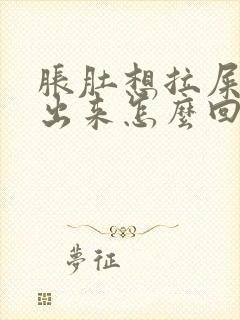 脹肚想拉屎
出来怎麽回
夢征